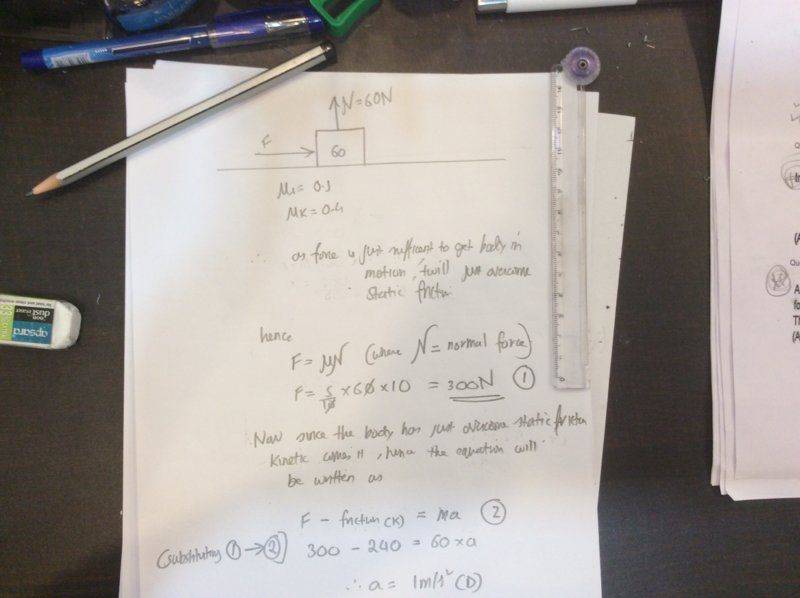 N=60N
F
60
μs = 0.5
μk = 0.4
as force is just sufficent to get body in
motion, twill just overcome
static frictn
hence
F = μN (where N = normal force)
F = 5/10 × 60 × 10 = 300N ①
Now since the body has just overcome static friction
kinetic comes it, hence the equation will
be written as
F - friction (K) = ma ②
(substituting ① → ②) 300 - 240 = 60 × a
∴ a = 1m/s² (D)
apsara
dust
eraser